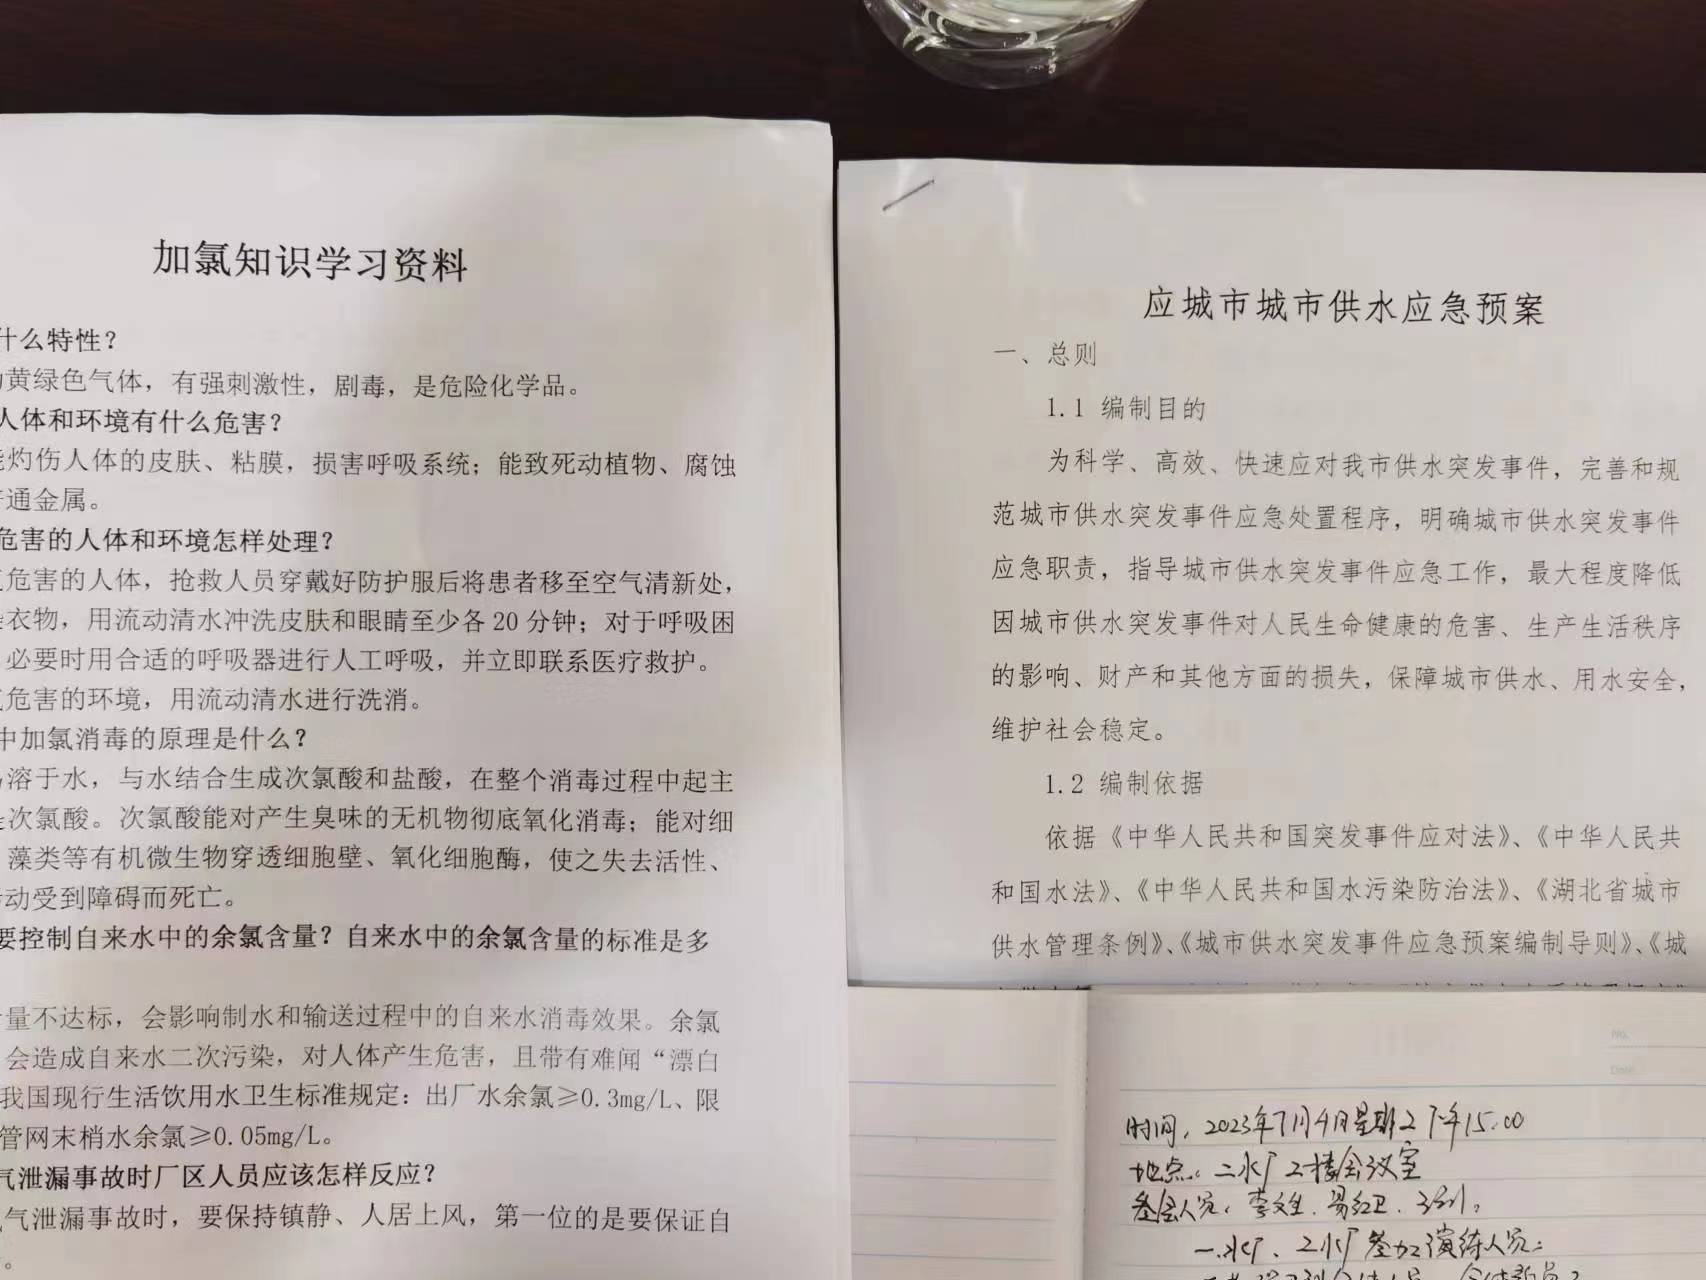 加氯知识学习资料
什么特性？
黄绿色气体，有强刺激性，剧毒，是危险化学品。
人体和环境有什么危害？
灼伤人体的皮肤、粘膜，损害呼吸系统；能致死动植物、腐蚀
通金属。
危害的人体和环境怎样处理？
危害的人体，抢救人员穿戴好防护服后将患者移至空气清新处，
衣物，用流动清水冲洗皮肤和眼睛至少各20分钟；对于呼吸困
必要时用合适的呼吸器进行人工呼吸，并立即联系医疗救护。
危害的环境，用流动清水进行洗消。
中加氯消毒的原理是什么？
溶于水，与水结合生成次氯酸和盐酸，在整个消毒过程中起主
次氯酸。次氯酸能对产生臭味的无机物彻底氧化消毒；能对细
藻类等有机微生物穿透细胞壁、氧化细胞酶，使之失去活性、
动受到障碍而死亡。
要控制自来水中的余氯含量？自来水中的余氯含量的标准是多
量不达标，会影响制水和输送过程中的自来水消毒效果。余氯
会造成自来水二次污染，对人体产生危害，且带有难闻“漂白
我国现行生活饮用水卫生标准规定：出厂水余氯≥0.3mg/L、限
管网末梢水余氯≥0.05mg/L。
气泄漏事故时厂区人员应该怎样反应？
气泄漏事故时，要保持镇静、人居上风，第一位的是要保证自
。
应城市城市供水应急预案
一、总则
1.1 编制目的
为科学、高效、快速应对我市供水突发事件，完善和规
范城市供水突发事件应急处置程序，明确城市供水突发事件
应急职责，指导城市供水突发事件应急工作，最大程度降低
因城市供水突发事件对人民生命健康的危害、生产生活秩序
的影响、财产和其他方面的损失，保障城市供水、用水安全，
维护社会稳定。
1.2 编制依据
依据《中华人民共和国突发事件应对法》、《中华人民共
和国水法》、《中华人民共和国水污染防治法》、《湖北省城市
供水管理条例》、《城市供水突发事件应急预案编制导则》、《城
No.
Date
时间：2023年7月4日星期2下午15:00
地点：二水厂2楼会议室
参会人员：李文生、
一水厂、2水厂参加演练人员：